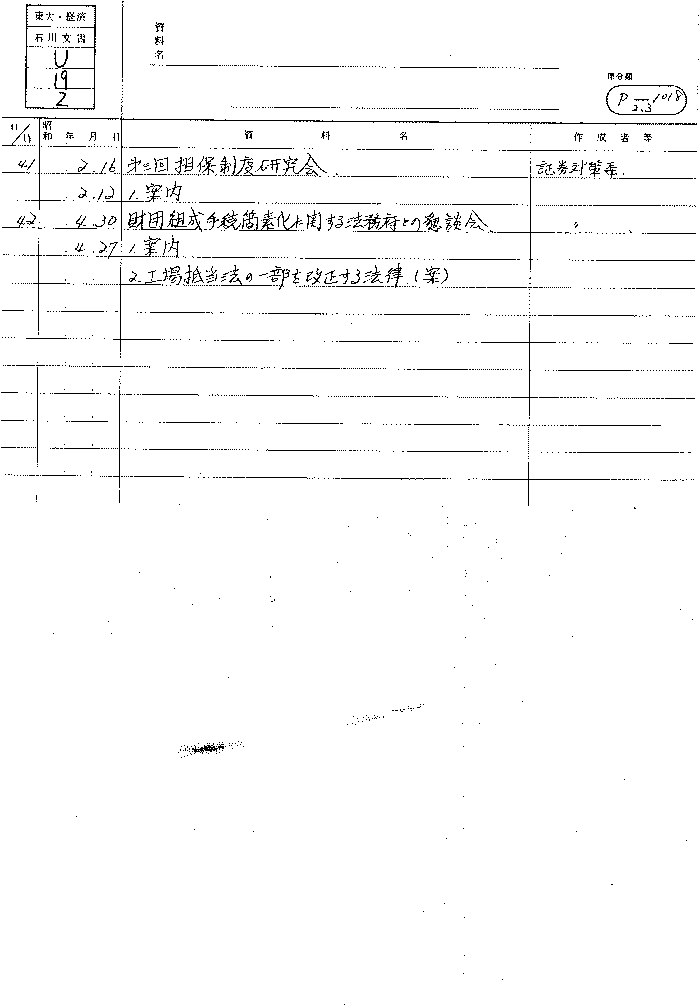 東大・経済
石川文書
U
19
2
資料名
原分類
P 2.3 1018
昭和 年 月 日 資料名 作成者等
41 2.16 才二回担保制度研究会 証券対策委.
2.12 1.案内
42 4.30 財団組成手続簡素化に関する法務府との懇談会 〃
4.27 1.案内
2.工場抵当法の一部を改正する法律(案)